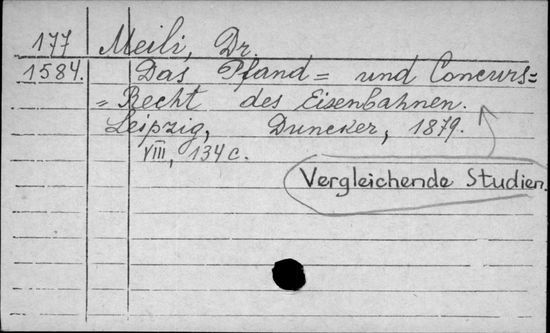 177 Meili, Dr.
1584. Das Pfand= und Concurs=
=Recht des Eisenbahnen.
Leipzig, Duncker, 1879.
VIII, 134 c.
Vergleichende Studien.